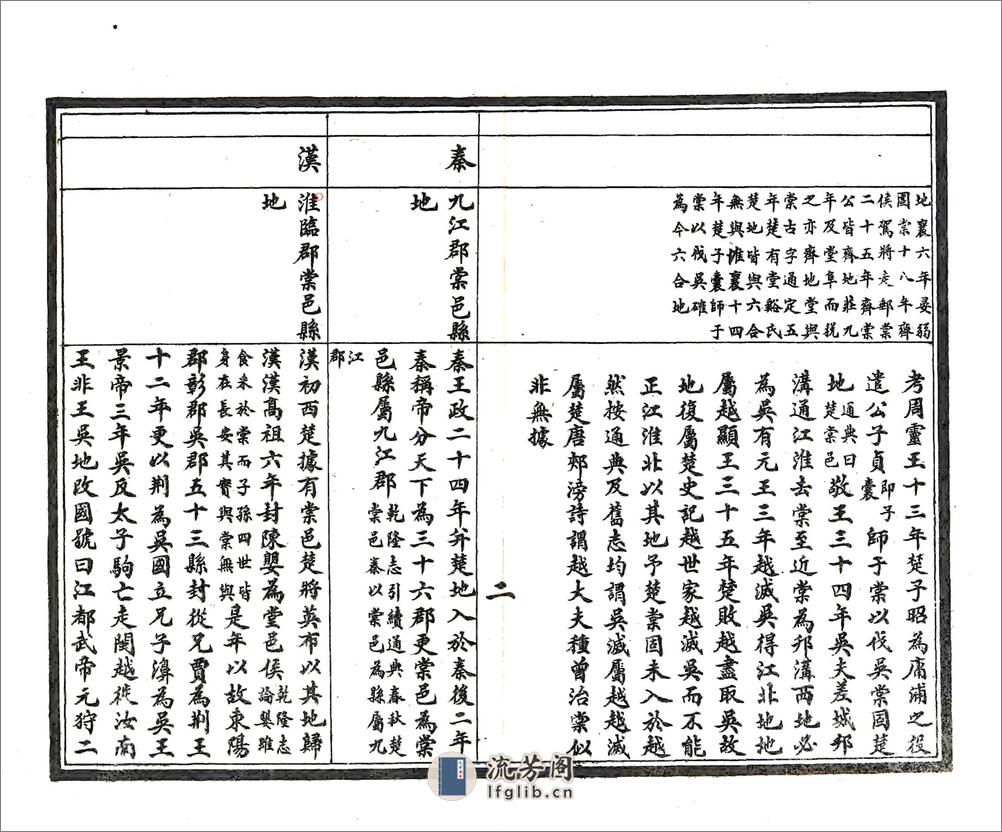 地襄六年晏弱
圍棠十八年齊
侯駕將走郵棠
二十五年齊棠
公皆齊地莊九
年及堂阜而稅
之亦齊地堂與
棠古字通定五
年楚有堂谿氏
楚地皆與六合
無與惟襄十四
年楚子囊師于
棠以伐吳確
為今六合地
考周靈王十三年楚子昭為庸浦之役
遣公子貞即子囊師于棠以伐吳棠固楚
地通典曰楚棠邑敬王三十四年吳夫差城邗
溝通江淮去棠至近棠為邗溝西地必
為吳有元王三年越滅吳得江北地地
屬越顯王三十五年楚敗越盡取吳故
地復屬楚史記越世家越滅吳而不能
正江淮北以其地予楚棠固未入於越
然按通典及舊志均謂吳滅屬越越滅
屬楚唐郟滂詩謂越大夫種曾治棠似
非無據
二
秦
九江郡棠邑縣
地
秦王政二十四年并楚地入於秦後二年
秦稱帝分天下為三十六郡更棠邑為棠
邑縣屬九江郡乾隆志引續通典春秋楚棠邑秦以棠邑為縣屬九
江郡
漢
淮臨郡棠邑縣
地
漢初西楚據有棠邑楚將英布以其地歸
漢漢高祖六年封陳嬰為堂邑侯乾隆志論嬰雖
食采於棠而子孫四世皆身在長安其實與棠無與是年以故東陽
郡彰郡吳郡五十三縣封從兄賈為荆王
十二年更以荆為吳國立兄子濞為吳王
景帝三年吳反太子駒亡走閩越徙汝南
王非王吳地改國號曰江都武帝元狩二
流芳阁
lfglib.cn